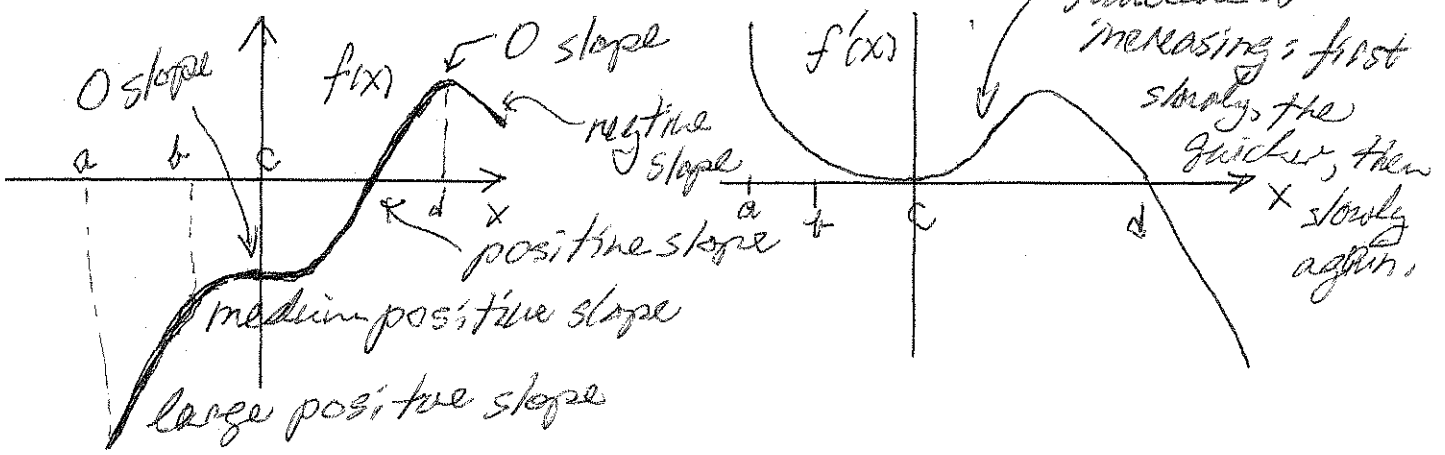 0 slope
f(x)
0 slope
negtive
slope
a
b
c
d
x
positive slope
medium positive slope
large positive slope
f'(x)
increasing; first
slowly, the
quicker, then
slowly
again.
a
b
c
d
x